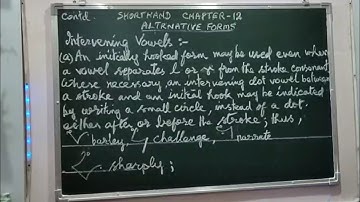 Contd- SHORTHAND CHAPTER-12
ALTRNATIVE FORMS
Intervening Vowels :-
(a) An initially hooked form may be used even when
a vowel separates l or r from the stroke consonant
Where necessary an intervening dot vowel between
a stroke and an initial hook may be indicated
by writing a small circle, instead of a dot,
either after or before the stroke; thus,
barley, challenge, narrate
sharply;